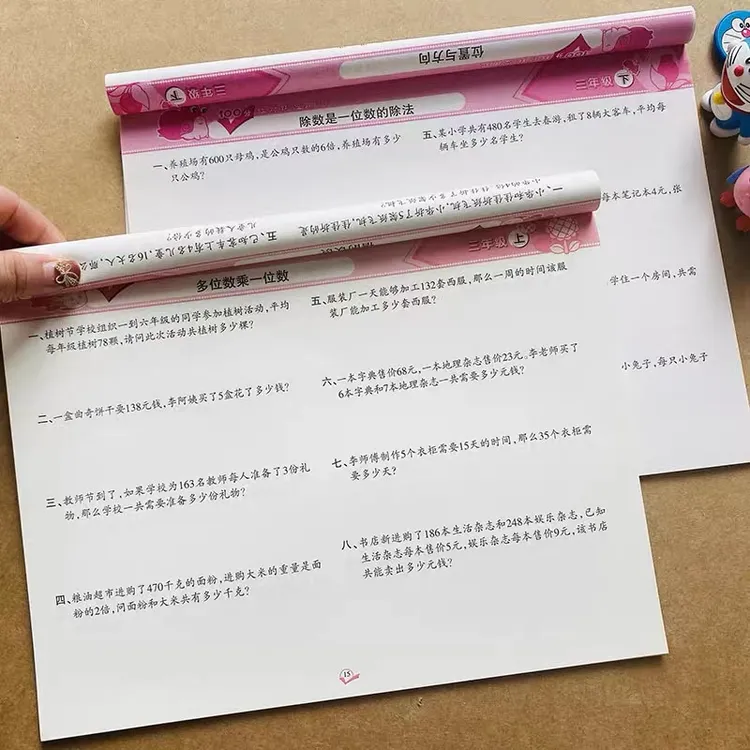 位置与方向
三年级 下
三年级 上
100分
除数是一位数的除法
一、养殖场有600只母鸡,是公鸡只数的6倍,养殖场有多少
只公鸡?
五、某小学共有480名学生去春游,租了8辆大客车,平均每
辆车坐多少名学生?
每本笔记本4元,张
学住一个房间,共需
小兔子,每只小兔子
一、小华和佳佳折纸飞机,小华折了5架纸飞机,佳佳折的是
五、已知客车上有4名儿童,16名大人,那么
儿童人数的多少倍?
三年级 上
多位数乘一位数
一、植树节学校组织一到六年级的同学参加植树活动,平均
每年级植树78颗,请问此次活动共植树多少棵?
二、一盒曲奇饼干要138元钱,李阿姨买了5盒花了多少钱?
三、教师节到了,如果学校为163名教师每人准备了3份礼
物,那么学校一共需要准备多少份礼物?
四、粮油超市进购了470千克的面粉,进购大米的重量是面
粉的2倍,问面粉和大米共有多少千克?
五、服装厂一天能够加工132套西服,那么一周的时间该服
装厂能加工多少套西服?
六、一本字典售价68元,一本地理杂志售价23元。李老师买了
6本字典和7本地理杂志一共需要多少元钱?
七、李师傅制作5个衣柜需要15天的时间,那么35个衣柜需
要多少天?
八、书店新进购了186本生活杂志和248本娱乐杂志,已知
生活杂志每本售价5元,娱乐杂志每本售价9元,该书店
共能卖出多少元钱?
15